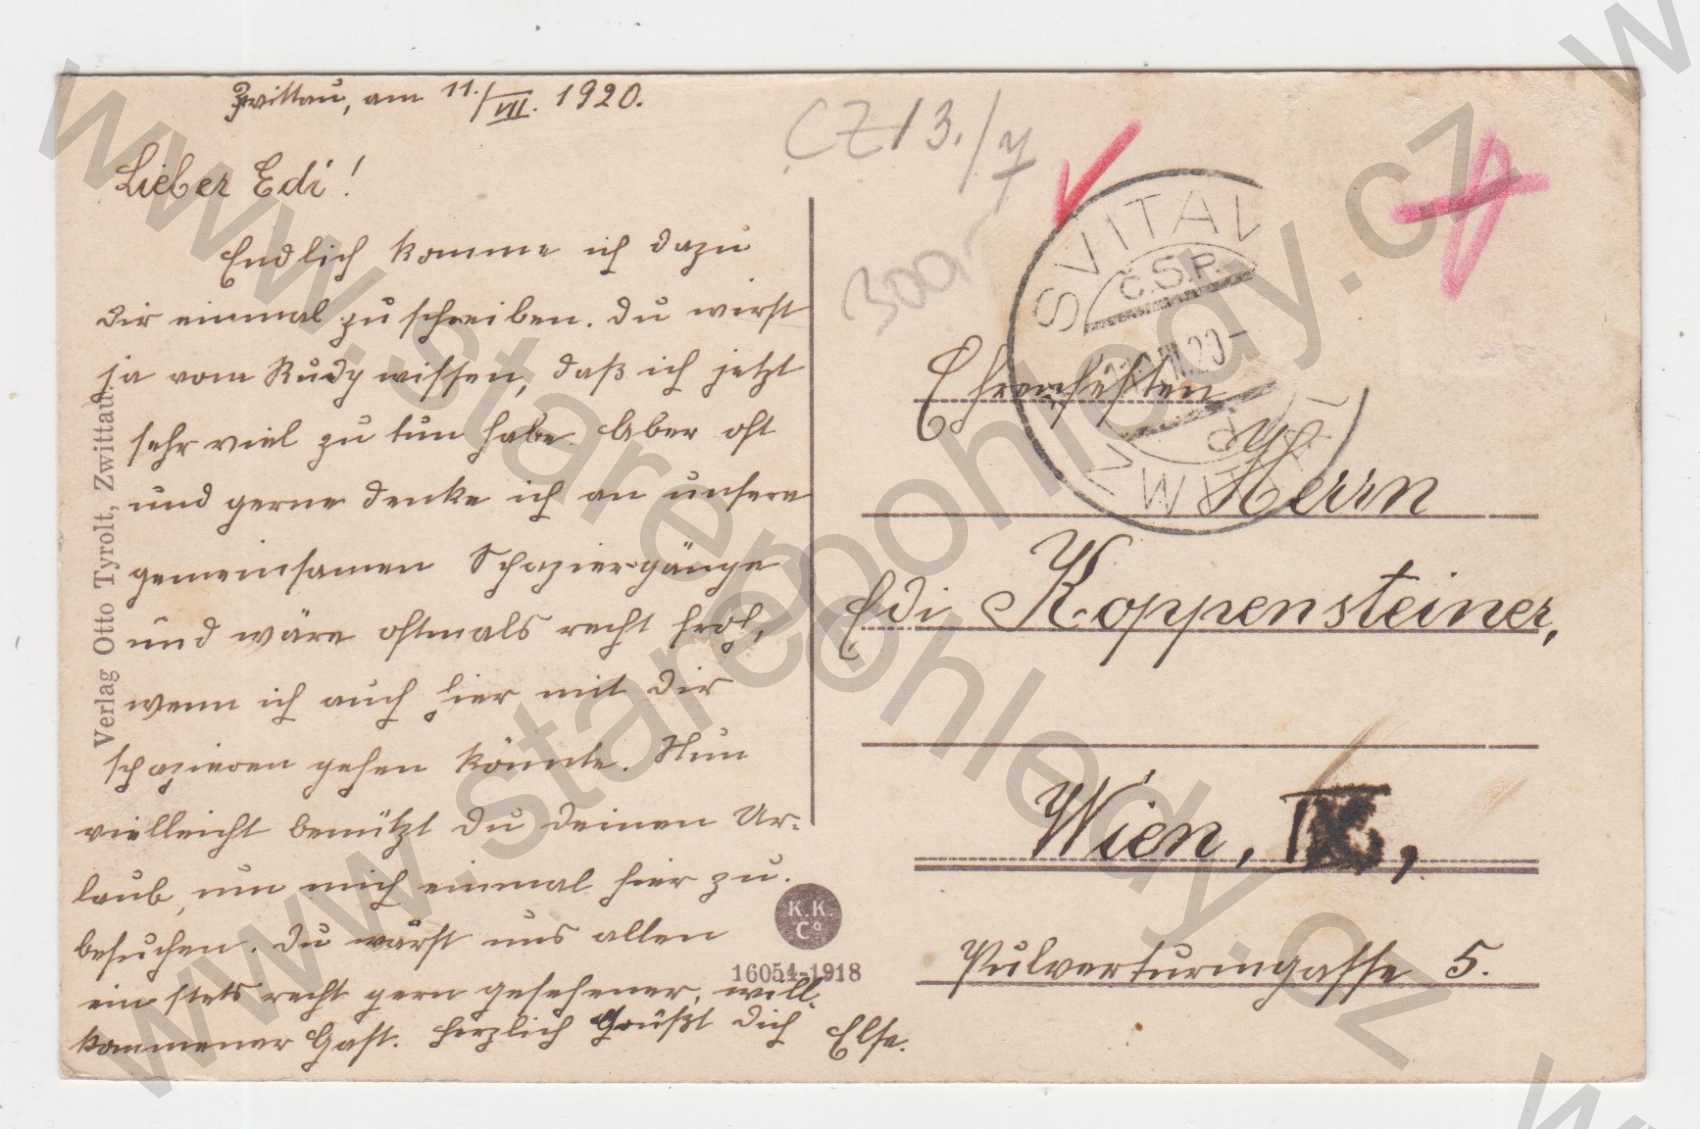 Zwittau, am 11./VII. 1920.
Lieber Edi!
Endlich komme ich dazu
dir einmal zu schreiben. Du wirst
ja vom Rudy wissen, daß ich jetzt
sehr viel zu tun habe. Aber oft
und gerne denke ich an unsere
gemeinsamen Spaziergänge
und wäre oftmals recht froh,
wenn ich auch hier mit dir
spazieren gehen könnte. Nun
vielleicht benützt du deinen Ur-
laub, um mich einmal hier zu
besuchen. Du wärst uns allen
ein stets recht gern gesehener, will-
kommener Gast. Herzlich Grüßt dich Else.
Verlag Otto Tyrolt, Zwittau
K.K.
Co
16054-1918
CZ 13./7
300,-
SVITAVY
Č.S.P.
11.VII.20-
ZWITTAU
Ehrengeachten
Herrn
Edi Koppensteiner,
Wien, IX.,
Pulverturmgasse 5.
www.starepohledy.cz
www.starepohledy.cz